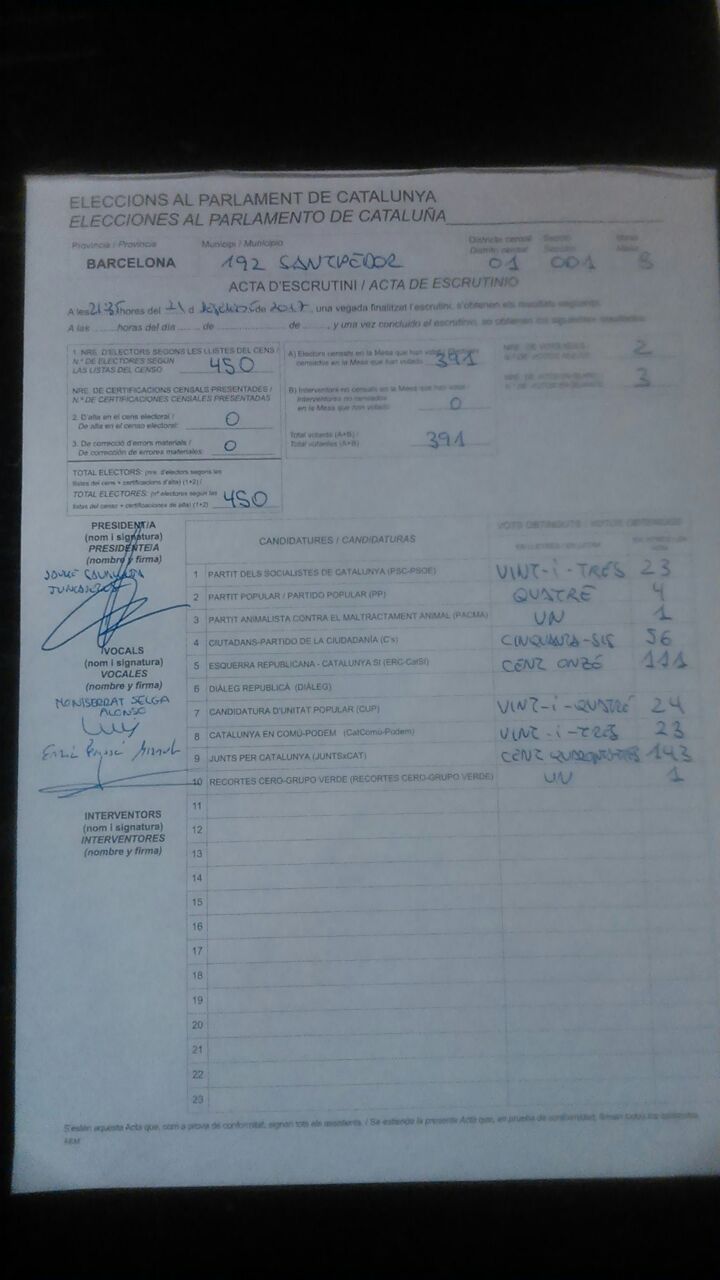 ELECCIONS AL PARLAMENT DE CATALUNYA
ELECCIONES AL PARLAMENTO DE CATALUÑA
Província / Provincia Municipi / Municipio Districte censal Secció Mesa
Distrito censal Sección Mesa
BARCELONA 192 SANTPEDOR 01 001 B
ACTA D'ESCRUTINI / ACTA DE ESCRUTINIO
A les 21:35 hores del 21 d desembre de 2017, una vegada finalitzat l'escrutini, s'obtenen els resultats següents:
A las ........ horas del día ...... de ........................ de ......, y una vez concluido el escrutinio, se obtienen los siguientes resultados:
1. NRE. D'ELECTORS SEGONS LES LLISTES DEL CENS /
N.º DE ELECTORES SEGÚN
LAS LISTAS DEL CENSO 450
NRE. DE CERTIFICACIONS CENSALS PRESENTADES /
N.º DE CERTIFICACIONES CENSALES PRESENTADAS
2. D'alta en el cens electoral /
De alta en el censo electoral: 0
3. De correcció d'errors materials /
De corrección de errores materiales: 0
TOTAL ELECTORS: (nre. d'electors segons les
llistes del cens + certificacions d'alta) (1+2) /
TOTAL ELECTORES: (nº electores según las
listas del censo + certificaciones de alta) (1+2) 450
A) Electors censats en la Mesa que han votat /
censados en la Mesa que han votado 391
B) Interventors no censats en la Mesa que han votat
Interventores no censados
en la Mesa que han votado 0
Total votants (A+B) /
Total votantes (A+B) 391
2
3
PRESIDENT/A
(nom i signatura)
PRESIDENTE/A
(nombre y firma)
VOCALS
(nom i signatura)
VOCALES
(nombre y firma)
MONTSERRAT SELGA
ALONSO
INTERVENTORS
(nom i signatura)
INTERVENTORES
(nombre y firma)
CANDIDATURES / CANDIDATURAS VOTS OBTINGUTS VOTOS OBTENIDOS
1 PARTIT DELS SOCIALISTES DE CATALUNYA (PSC-PSOE) VINT-I-TRES 23
2 PARTIT POPULAR / PARTIDO POPULAR (PP) QUATRE 4
3 PARTIT ANIMALISTA CONTRA EL MALTRACTAMENT ANIMAL (PACMA) UN 1
4 CIUTADANS-PARTIDO DE LA CIUDADANÍA (C's) CINQUANTA-SIS 56
5 ESQUERRA REPUBLICANA - CATALUNYA SÍ (ERC-CatSí) CENT ONZE 111
6 DIÀLEG REPUBLICÀ (DIÀLEG)
7 CANDIDATURA D'UNITAT POPULAR (CUP) VINT-I-QUATRE 24
8 CATALUNYA EN COMÚ-PODEM (CatComú-Podem) VINT-I-TRES 23
9 JUNTS PER CATALUNYA (JUNTSxCAT) CENT QUARANTA-TRES 143
10 RECORTES CERO-GRUPO VERDE (RECORTES CERO-GRUPO VERDE) UN 1
11
12
13
14
15
16
17
18
19
20
21
22
23
S'estén aquesta Acta que, com a prova de conformitat, signen tots els assistents. / Se extiende la presente Acta que, en prueba de conformidad, firman todos los asistentes.